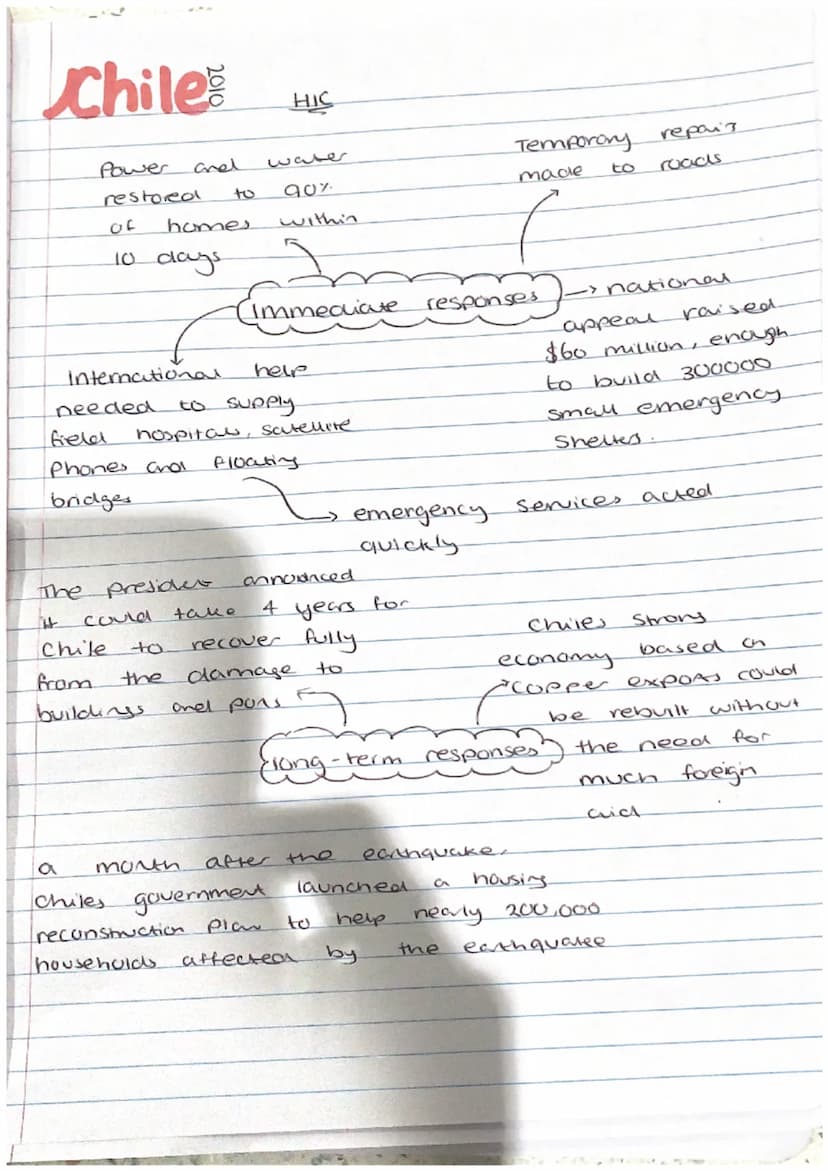 Chile 2010
HIC
Power and water
restored to 90%
of homes within
10 days
Temporary repairs
made to roads
Immediate responses
national
appeal raised
$60 million, enough
to build 300000
small emergency
Shelters.
International help
needed to supply
field hospitals, satellite
Phones and floating
bridges
emergency services acted
quickly
The president announced
it could take 4 years for
Chile to recover fully
from the damage to
buildings and ports
Chiles strong
economy based on
copper exports could
be rebuilt without
the need for
much foreign
aid
long-term responses
a month after the earthquake,
Chiles government launched a housing
reconstruction plan to help nearly 200,000
households affected by the earthquake